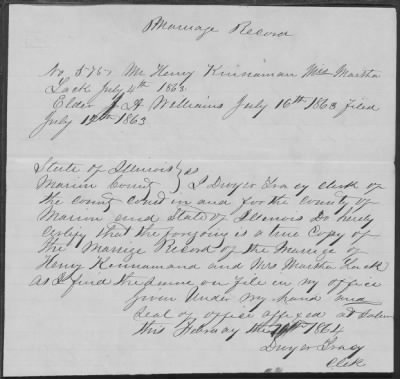 Marriage Record
No, 5767 Mr Henry Kinnaman Mrs Martha
Lack July 4th 1863
Elder J A Williams July 16th 1863 filed
July 19th 1863
State of Illinois } ss
Marion County } I Dwyer Tracy clerk of
the county court in and for the county of
Marion and State of Illinois Do herby
certify that the forgoing is a true Copy of
the Marrige Record of the Marrige of
Henry Kinnamand and Mrs Martha Lack
as I find the same on file in my office
given Under my hand and
Seal of office affixed at Salem
this February the 1864
Dwyer Tracy
Clerk